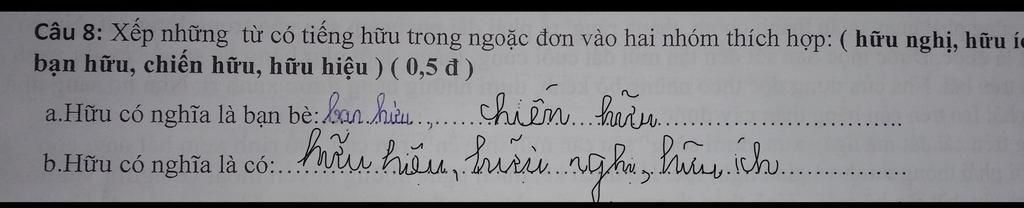 Câu 8: Xếp những từ có tiếng hữu trong ngoặc đơn vào hai nhóm thích hợp: ( hữu nghị, hữu í
bạn hữu, chiến hữu, hữu hiệu ) ( 0,5 đ )
a.Hữu có nghĩa là bạn bè: bạn hữu, chiến hữu
b.Hữu có nghĩa là có: hữu hiệu, hữu nghị, hữu ích